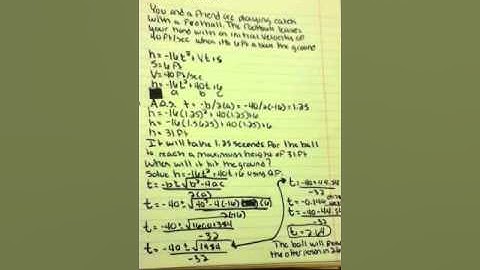 You and a friend are playing catch
with a football. The football leaves
your hand with an initial velocity of
40 ft/sec when its 6 ft above the ground
h = -16t² + vt + s
s = 6 ft
v = 40 ft/sec
h = -16t² + 40t + 6
a b c
A.O.S. t = -b/2(a) = -40/2(-16) = 1.25
h = -16(1.25)² + 40(1.25) + 6
h = -16(1.5625) + 40(1.25) + 6
h = 31 ft
It will take 1.25 seconds for the ball
to reach a maximum height of 31 ft
When will it hit the ground?
Solve h = -16t² + 40t + 6 using Q.F.
t = -b ± √b² - 4ac
2(a)
t = -40 ± √40² - 4(-16)(6)
2(-16)
t = -40 ± √1600 + 384
-32
t = -40 ± √1984
-32
t = -40 + 44.54
-32
t = -0.14
t = -40 - 44.54
-32
t = 2.64
The ball will
the other person in 2.6